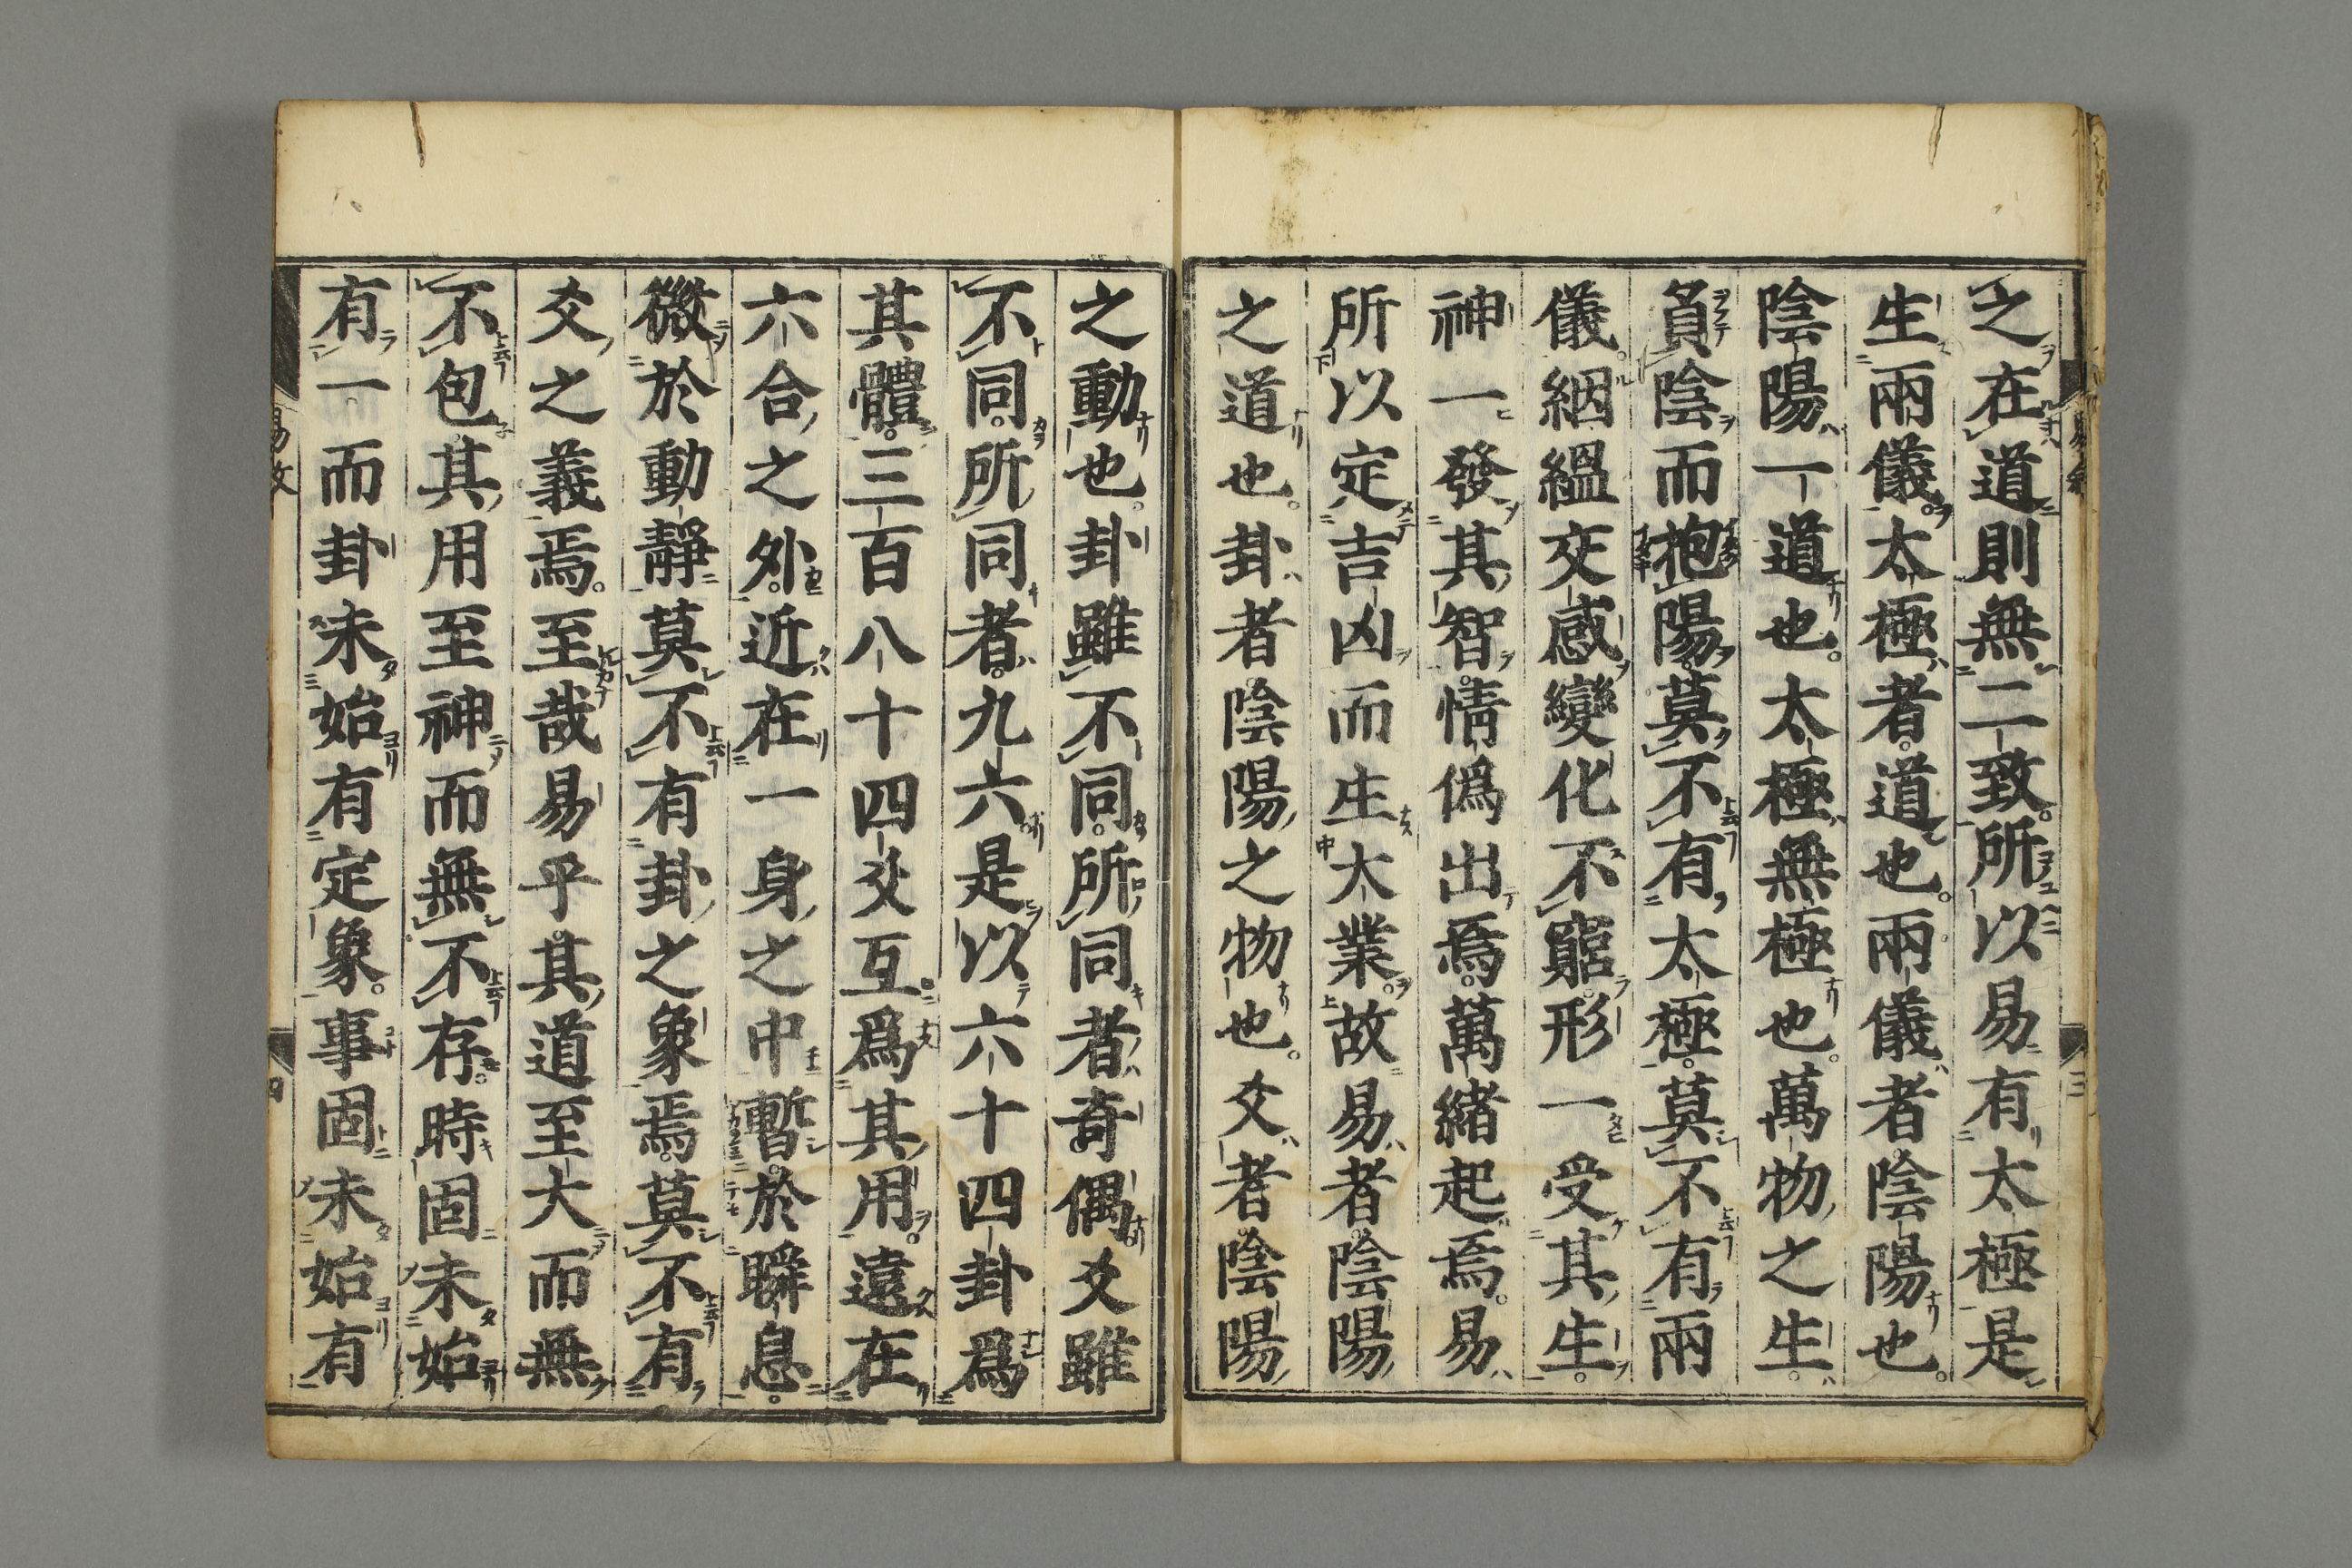 之在道則無二致。所以易有太極是
生兩儀。太極者道也。兩儀者陰陽也。
陰陽一道也。太極無極也。萬物之生。
負陰而抱陽。莫不有太極。莫不有兩
儀。絪縕交感變化不窮。形一受其生。
神一發其智。情僞出焉。萬緒起焉。易
所以定吉凶而生大業。故易者陰陽
之道也。卦者陰陽之物也。爻者陰陽
之動也。卦雖不同。所同者奇偶。爻雖
不同。所同者。九六。是以六十四卦爲
其體。三百八十四爻互爲其用。遠在
六合之外。近在一身之中。暫於瞬息。
微於動靜。莫不有卦之象焉。莫不有
爻之義焉。至哉易乎。其道至大而無
不包。其用至神而無不存。時固未始
有一。而卦未始有定象。事固未始有